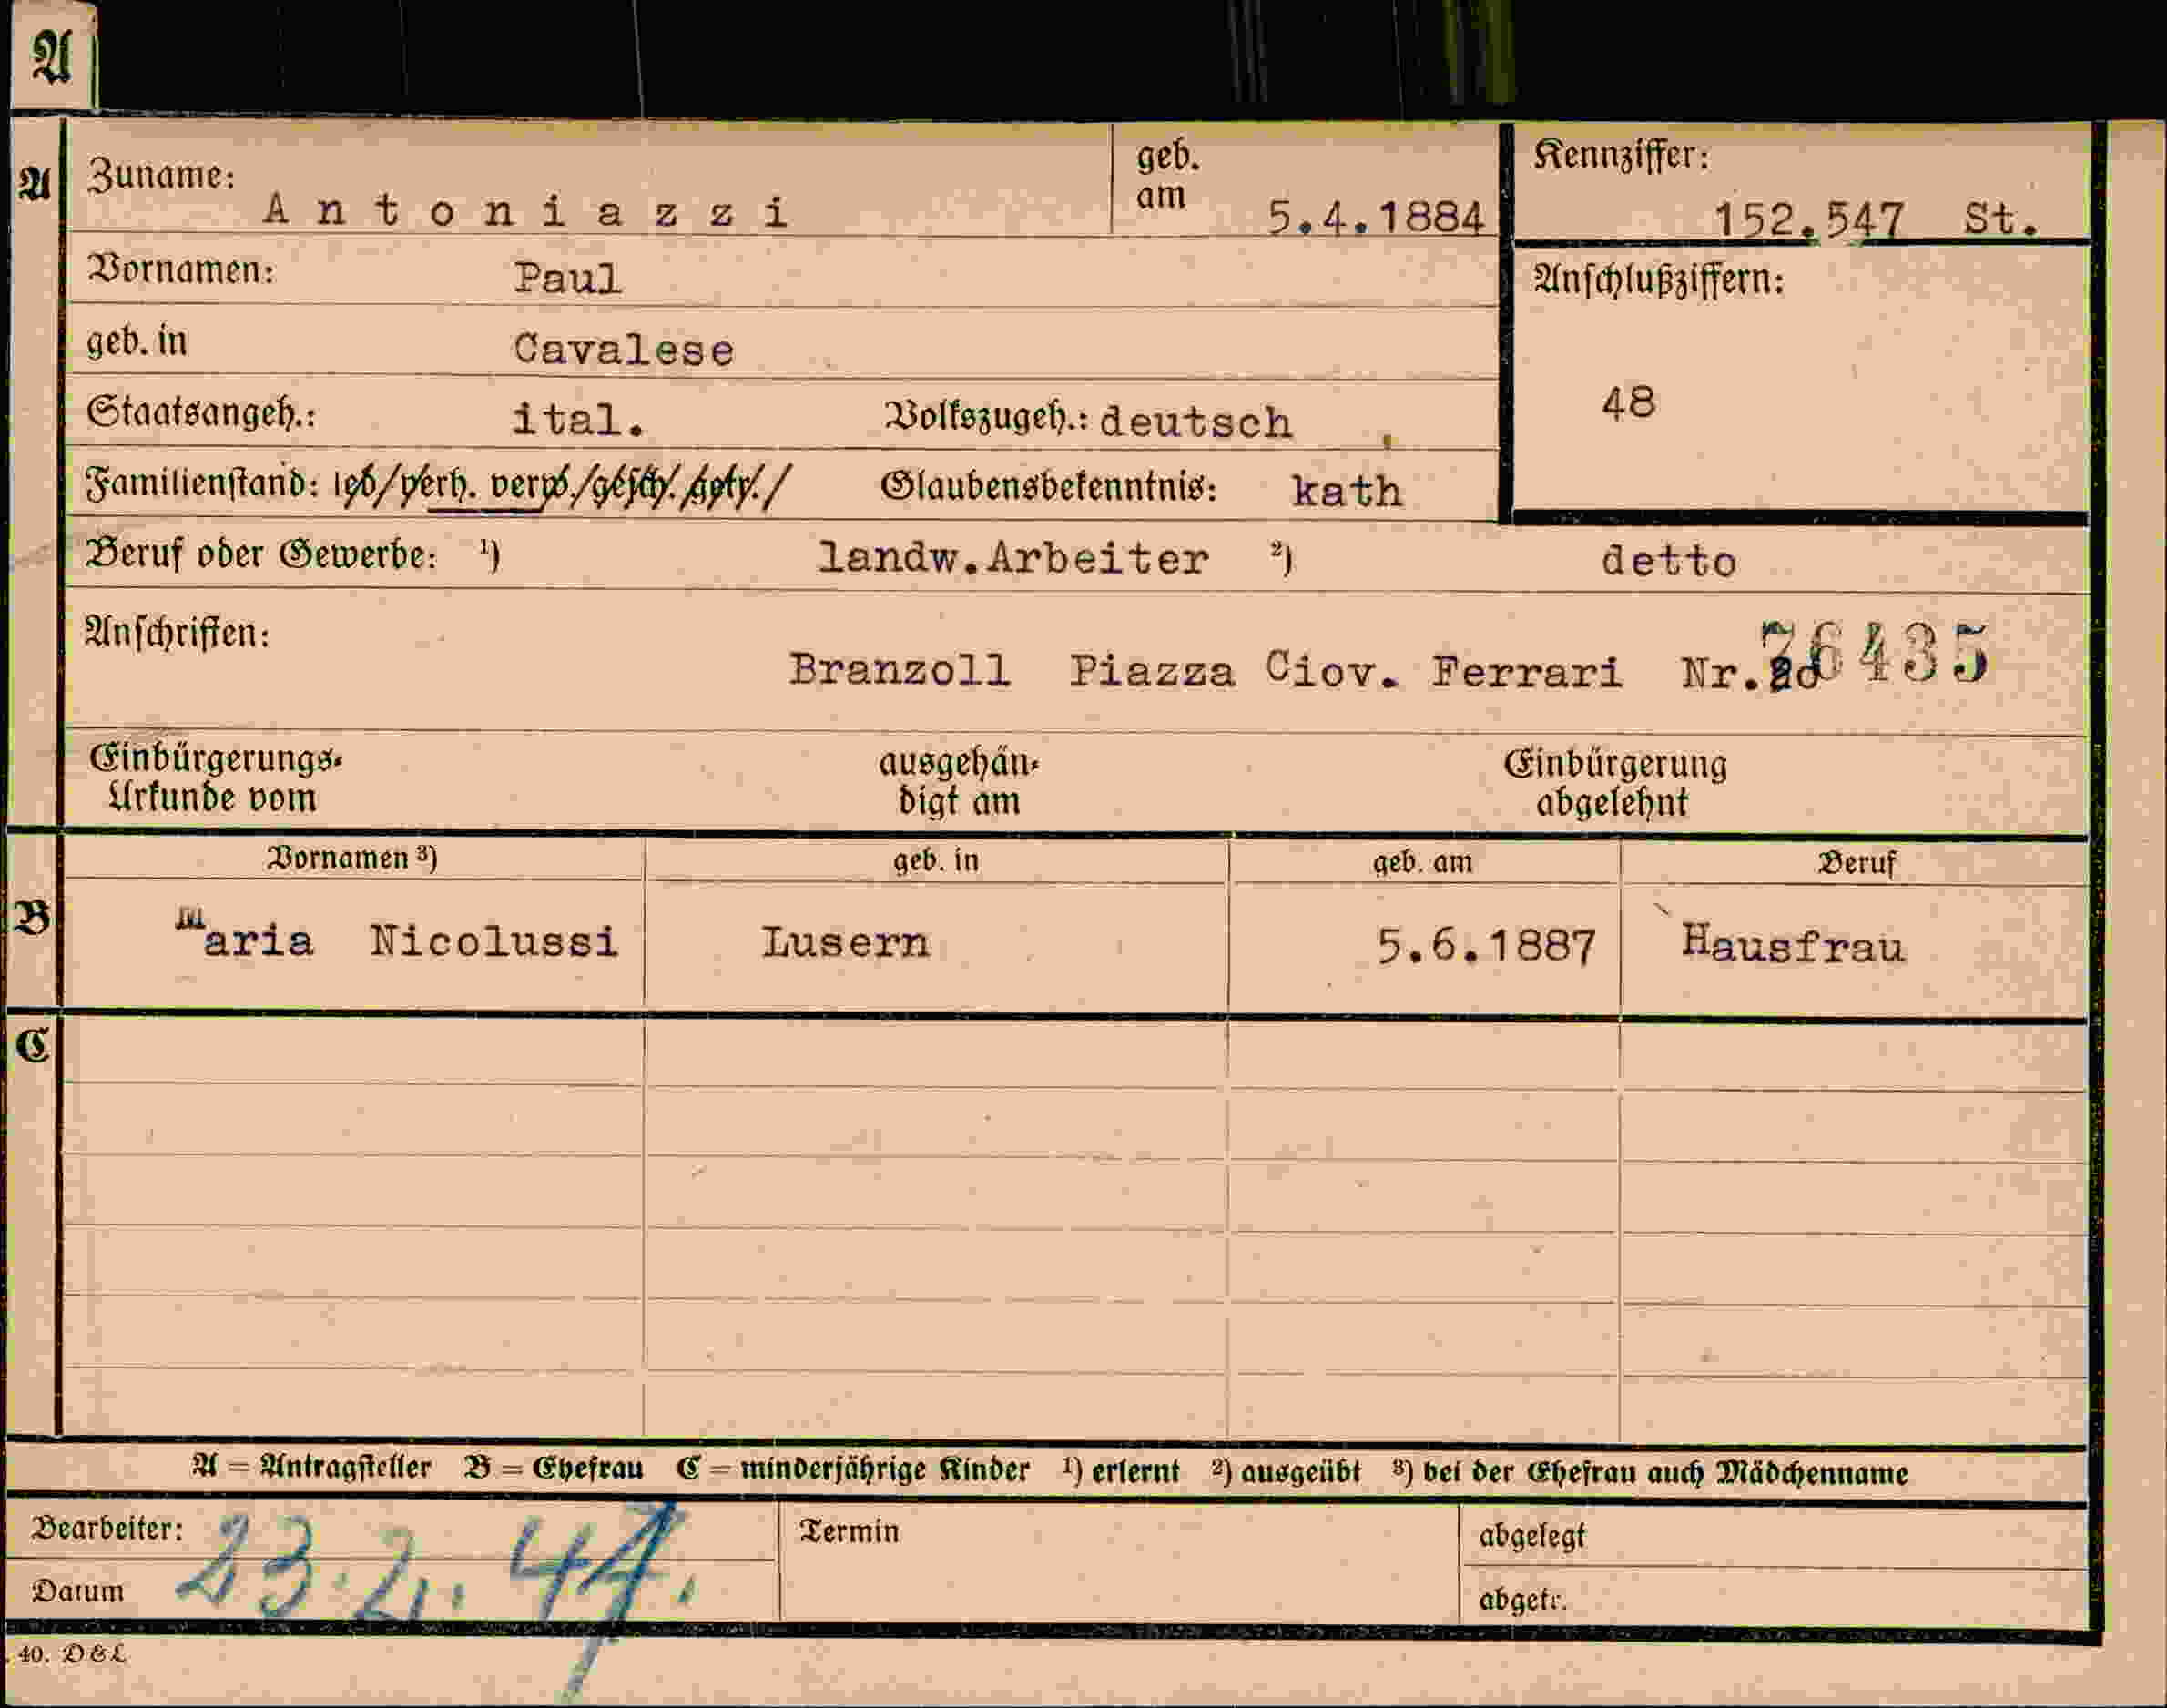 A
A
Zuname: Antoniazzi geb. am 5.4.1884 Kennziffer: 152.547 St.
Vornamen: Paul Anschlußziffern:
geb. in Cavalese
Staatsangeh.: ital. Volkszugeh.: deutsch 48
Familienstand: led/verh. verw./gesch./getr./ Glaubensbekenntnis: kath
Beruf oder Gewerbe: ¹) landw.Arbeiter ²) detto
Anschriften:
Branzoll Piazza Ciov. Ferrari Nr. 76435
Einbürgerungs-Urkunde vom ausgehändigt am Einbürgerung abgelehnt
Vornamen ³) geb. in geb. am Beruf
B Maria Nicolussi Lusern 5.6.1887 Hausfrau
C
A = Antragsteller B = Ehefrau C = minderjährige Kinder ¹) erlernt ²) ausgeübt ³) bei der Ehefrau auch Mädchenname
Bearbeiter: Termin abgelegt
Datum 23. abgetr.
40. D&L